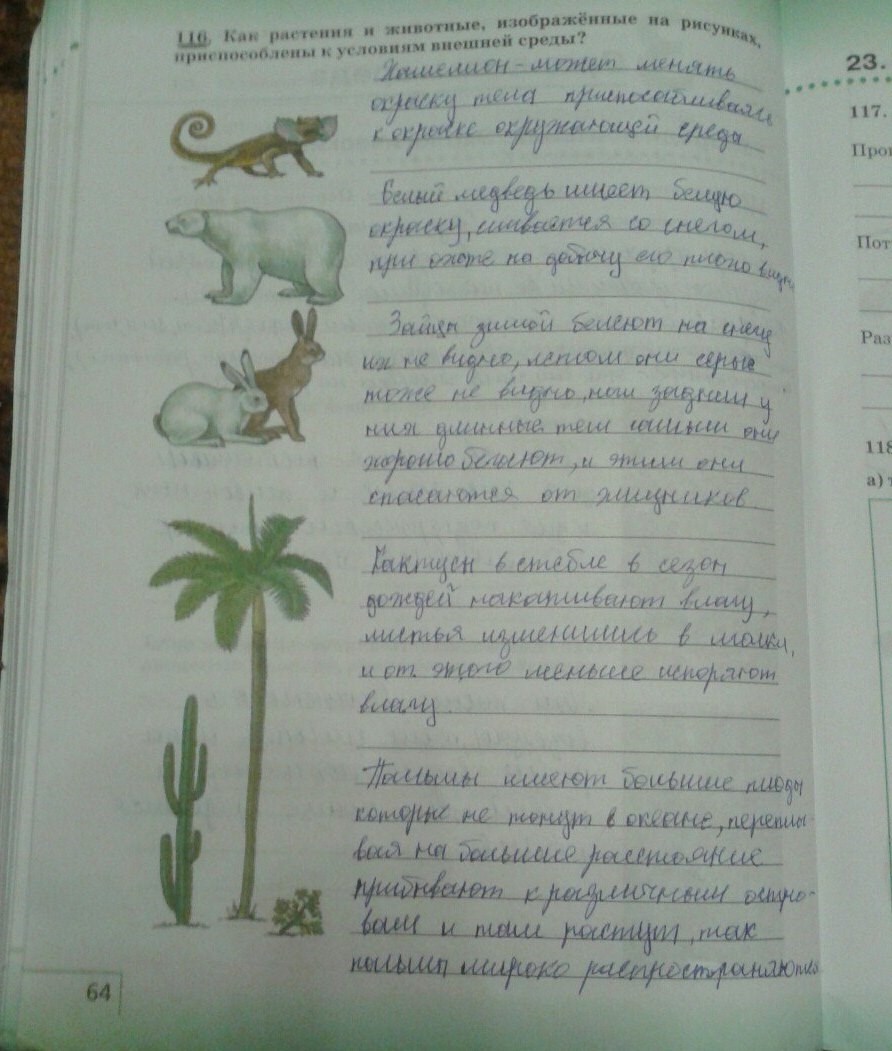 116. Как растения и животные, изображённые на рисунках,
приспособлены к условиям внешней среды?
Хамелион - может менять
окраску тела приспосабливаясь
к окраске окружающей среды
Белый медведь имеет белую
окраску, сливается со снегом,
при охоте на добычу его плохо видно
Зайцы зимой белеют на снегу
их не видно, летом они серые
тоже не видно, ноги задних у
них длинные тем самым они
хорошо бегают, и этим они
спасаются от хищников
Кактусы в стебле в сезон
дождей накапливают влагу,
листья изменились в иголки,
и от этого меньше испоряют
влагу.
Пальмы имеют большие плоды
которые не тонут в океане, переплы-
вая на большие расстояние
прибывают к различным остро-
вам и там растут, так
пальмы широко распространяются
64
23.
117.
Про
Пот
Раз
118
а)